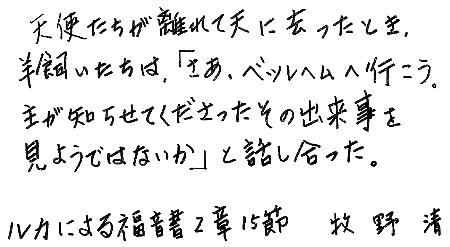 天使たちが離れて天に去ったとき、
羊飼いたちは、「さあ、ベツレヘムへ行こう。
主が知らせてくださったその出来事を
見ようではないか」と話し合った。
ルカによる福音書2章15節 牧野清